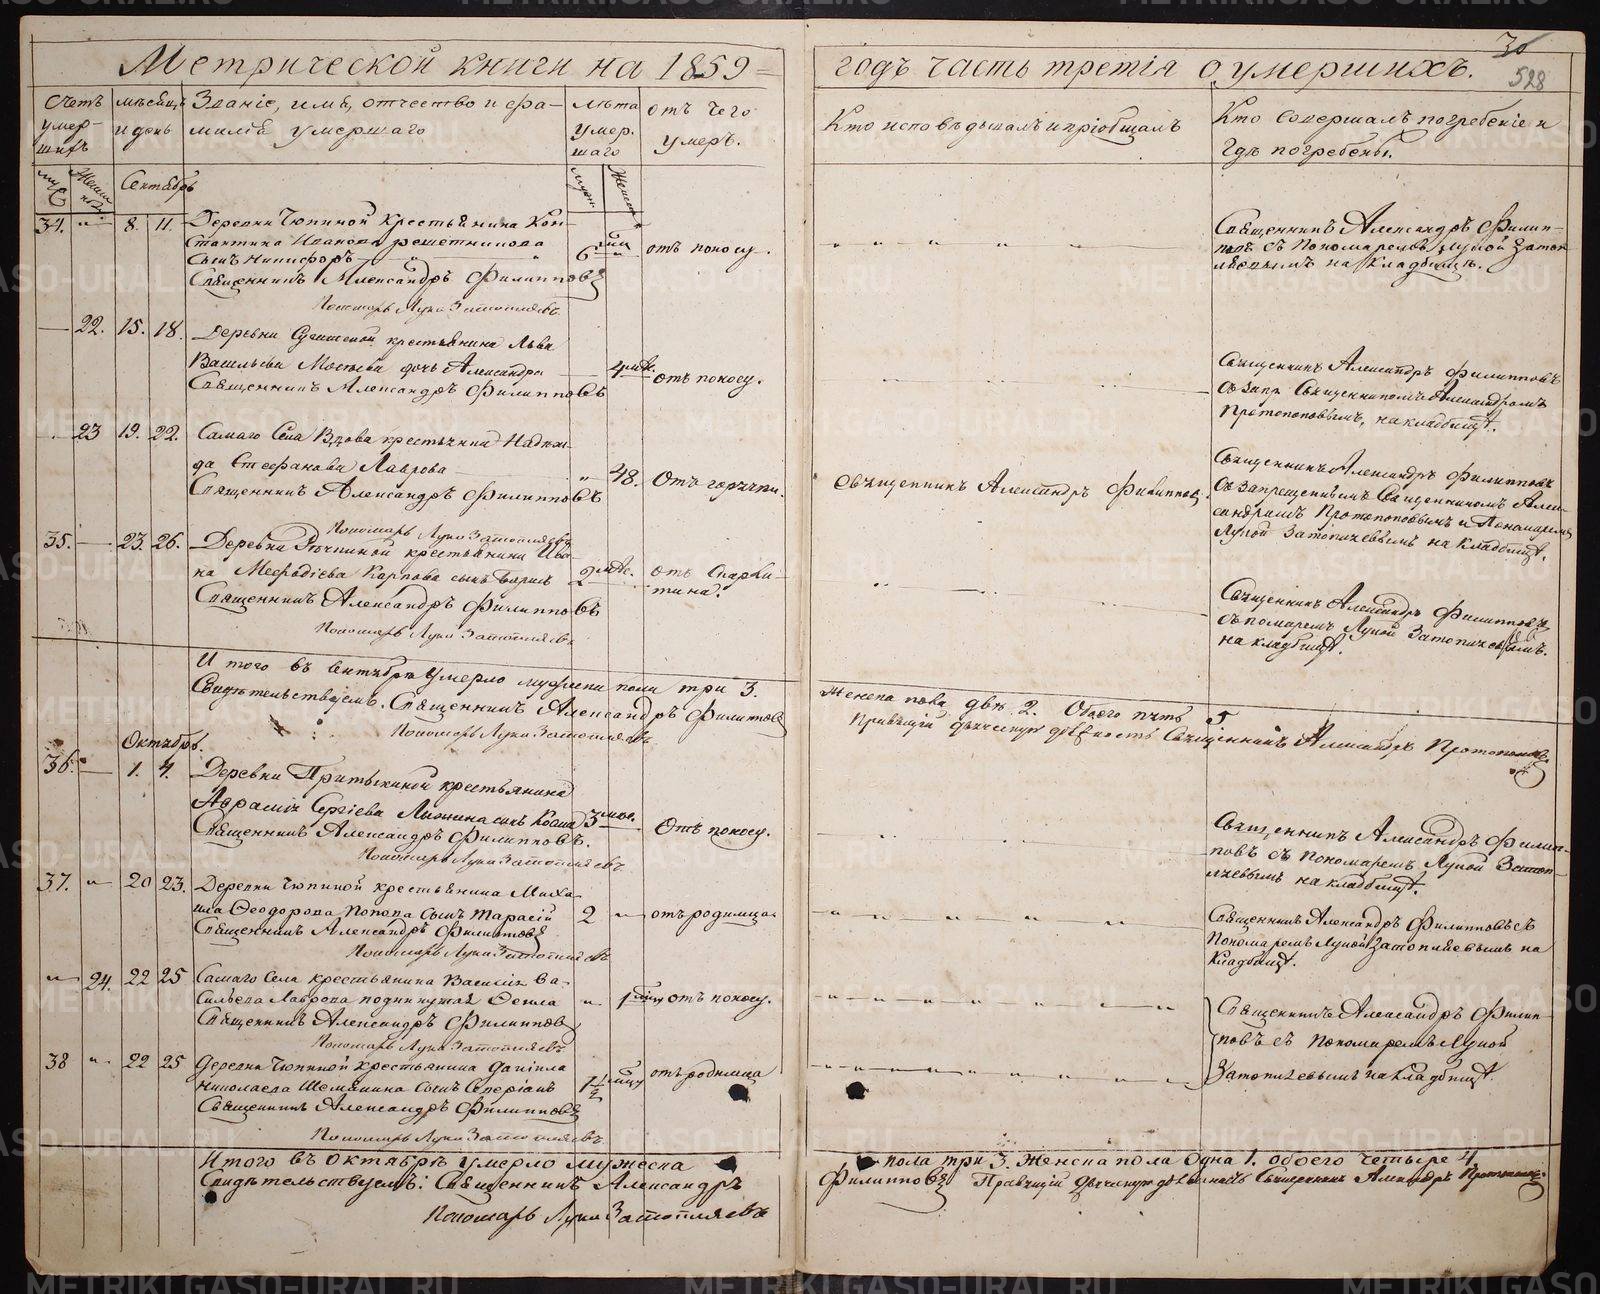 Метрической книги на 1859=
годъ часть третія о умершихъ.
30
528
Счетъ умершихъ
мѣсяцъ и день
Званіе, имя, отчество и фамилія умершаго
лѣта умершаго
отъ чего умеръ.
Кто исповѣдывалъ и пріобщалъ
Кто совершалъ погребеніе и
гдѣ погребены.
Сентябрь
34. " 8. 11. Деревни Тюпиной Крестьянина Кон-
стантина Иванова Решетникова
Сынъ Никифоръ 6 отъ поносу.
Священникъ Александръ Филипповъ
Пономарь Лука Затопляевъ
Священникъ Александръ Филип-
повъ съ Пономаремъ Лукой Затоп-
ляевымъ на Кладбищѣ.
22. 15. 18. Деревни крестьянина Льва
Васильева дочь Александра 4 отъ поносу.
Священникъ Александръ Филипповъ
Священникъ Александръ Филипповъ
съ запр. Священникомъ Александромъ
Протопоповымъ, на кладбищѣ.
23 19. 22. Самаго Села Вдова крестьянка Надеж-
да Стефанова Лаврова " 48. Отъ горячки.
Священникъ Александръ Филипповъ
Пономарь Лука Затопляевъ
Священникъ Александръ Филипповъ.
Священникъ Александръ Филипповъ
съ запрещеннымъ Священникомъ Алек-
сандромъ Протопоповымъ и Пономаремъ
Лукой Затопляевымъ на кладбищѣ.
35. 23. 26. Деревни крестьянина Ива-
на Мефодіева Карпова сынъ Борисъ 2 отъ Скарла-
тина.
Священникъ Александръ Филипповъ
Пономарь Лука Затопляевъ
Священникъ Александръ Филипповъ
съ пономаремъ Лукой Затопляевымъ.
на кладбищѣ.
Итого въ Сентябрѣ умерло мужеска пола три 3.
Женска пола двѣ 2. Обоего пять 5
Свидѣтельствуемъ. Священникъ Александръ Филипповъ
Правящій дьяческую должность Священникъ Александръ Протопоповъ
Пономарь Лука Затопляевъ
Октябрь.
36. 1. 4. Деревни Притыкиной крестьянина
Аврамія Сергіева сынъ Косма 3 Отъ поносу.
Священникъ Александръ Филипповъ.
Пономарь Лука Затопляевъ
Священникъ Александръ Филип-
повъ съ Пономаремъ Лукой Затоп-
ляевымъ на кладбищѣ.
37. " 20 23. Деревни Тюпиной крестьянина Миха-
ила Ѳеодорова Попова Сынъ Тарасій 2 " отъ родимца
Священникъ Александръ Филипповъ
Пономарь Лука Затопляевъ
Священникъ Александръ Филипповъ съ
Пономаремъ Лукой Затопляевымъ на
Кладбищѣ.
" 24. 22 25 Самаго Села крестьянина Василія Ва-
сильева Лаврова подкинутая Ѳекла " 1 отъ поносу.
Священникъ Александръ Филипповъ
Пономарь Лука Затопляевъ
Священникъ Александръ Филип-
повъ съ Пономаремъ Лукой
Затопляевымъ на Кладбищѣ.
38 " 22 25 Деревни Тюпиной Крестьянина Даніила
Николаева Шемякина Сынъ 1½ отъ родимца
Священникъ Александръ Филипповъ
Пономарь Лука Затопляевъ
Итого въ Октябрѣ умерло мужеска
пола три 3. Женска пола одна 1. обоего четыре 4
Свидѣтельствуемъ: Священникъ Александръ
Филипповъ Правящій дьяческую должность Священникъ Александръ Протопоповъ
Пономарь Лука Затопляевъ
METRIKI.GASO-URAL.RU